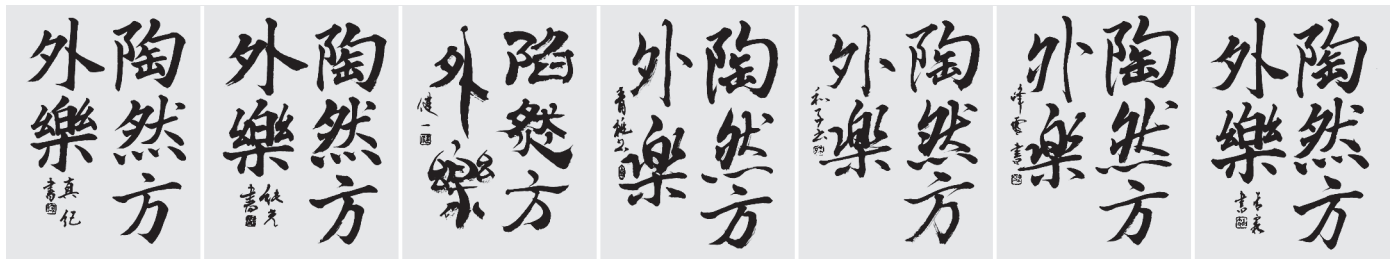 陶然方
外樂
真紀書
陶然方
外樂
書
陶然方
外樂
健一
陶然方
外楽
陶然方
外楽
和子書
陶然方
外楽
峰雲書
陶然方
外樂
書